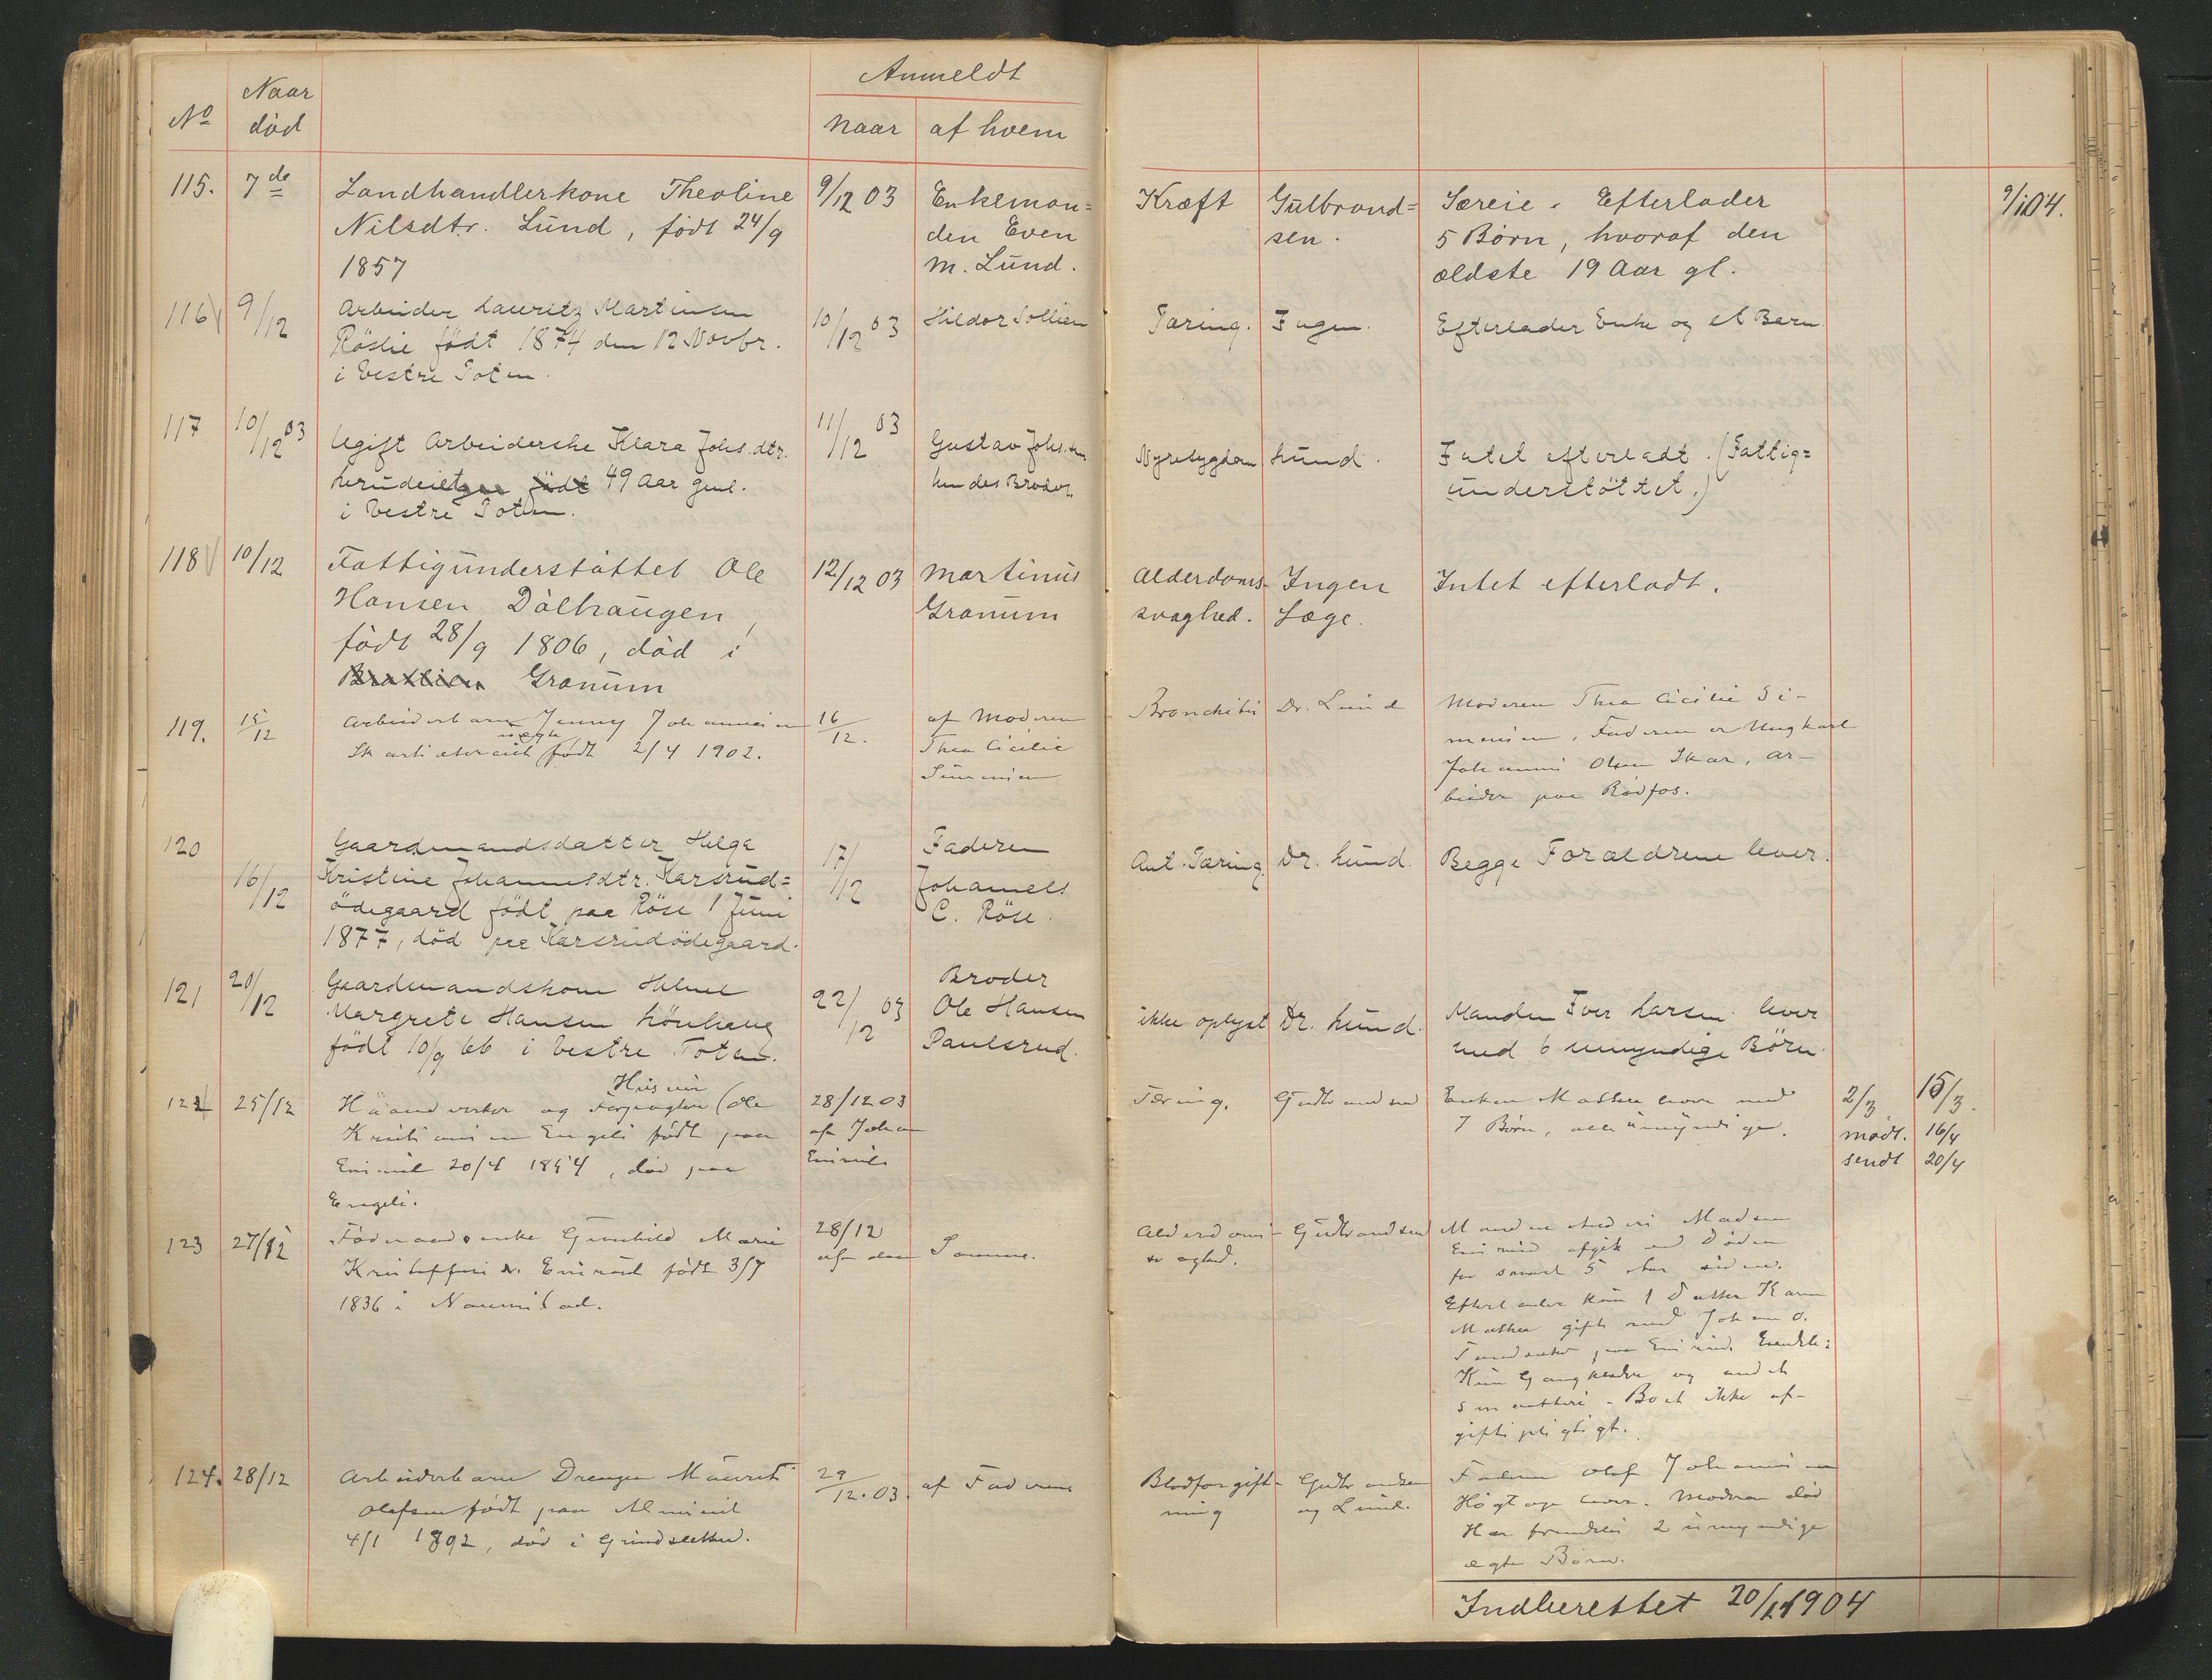 Anmeldt
No
Naar
død
naar
af hvem
115.
7de
Landhandlerkone Theoline
Nilsdtr. Lund, født 24/9
1857
9/12 03
Enkeman=
den Even
M. Lund.
Kræft
Gulbrand=
sen.
Særeie. Efterlader
5 Børn, hvoraf den
ældste 19 Aar gl.
9/1 04.
116
9/12
Arbeider Lauritz Martinsen
Röslie födt 1874 den 12 Novbr.
i Vestre Toten.
10/12 03
Hildor Sollien
Tæring.
Ingen.
Efterlader Enke og et Barn.
117
10/12 03
Ugift Arbeiderske Klara Johs.dtr.
født 49 Aar gml.
i Vestre Toten.
11/12 03
Gustav Johs.sen
hendes Broder
Nyresygdom
Lund.
Intet efterladt. (Fattig=
understöttet.)
118
10/12
Fattigunderstøttet Ole
Hansen Dølhaugen,
født 28/9 1806, død i
Granum
12/12 03
Martinus
Granum
Alderdoms-
svaghed.
Ingen
Læge.
Intet efterladt.
119.
15/12
Arbeiderbarn Jenny Johannesen
uægte
født 2/4 1902.
16/12.
af Moderen
Thea Cicilie
Simensen
Bronchitis
Dr. Lund
Moderen Thea Cicilie Si-
mensen, Faderen er Ungkarl
Johannes Olsen Skar, ar-
beider paa Rødfos.
120
16/12
Gaardmandsdatter Helga
Kristine Johannesdtr. Karsrud=
ödegaard födt paa Röse 1 Juni
1877, död paa Karsrudödegaard.
17/12
Faderen
Johannes
C. Röse.
Ant. Tæring.
Dr. Lund.
Begge Forældrene lever.
121
20/12
Gaardmandskone Helene
Margrete Hansen
födt 10/9 66 i Vestre Toten.
22/12 03
Broder
Ole Hansen
Paulsrud.
ikke oplyst
Dr. Lund.
Manden Iver Larsen lever
med 6 umyndige Børn.
122
25/12
Husm
Haandverker og Forpagter (Ole
Kristiansen Engeli født paa
20/4 1854, død paa
Engeli.
28/12 03
af Johan
Tæring.
Gudbrandsen
Enken Mathea lever med
7 Børn, alle umyndige.
2/3
15/3.
mødt. 16/4
sendt 20/4
123
27/12
Föderaadsenke Gunhild Marie
Kristoffersdtr. født 3/7
1836 i Nannestad.
28/12
af den Samme.
Alderdoms-
svaghed.
Gudbrandsen
Manden Anders Madsen
afgik ved Døden
for snart 5 Aar siden.
Efterlader kun 1 Datter Karen
Mathea gift med Johan O.
paa
Kun Gangklæder og andet
smaatteri. Boet ikke af-
giftspligtigt.
124.
28/12
Arbeiderbarn Drengen Maurits
Olafsen født paa
4/1 1892, død i Grindsletten.
29/12.03.
af Faderen
Blodforgift-
ning
Gudbrandsen
og Lund.
Faderen Olaf Johannesen
lever. Moderen død
Har fremdeles 2 umyndige
ægte Børn.
Indberettet 20/1 1904